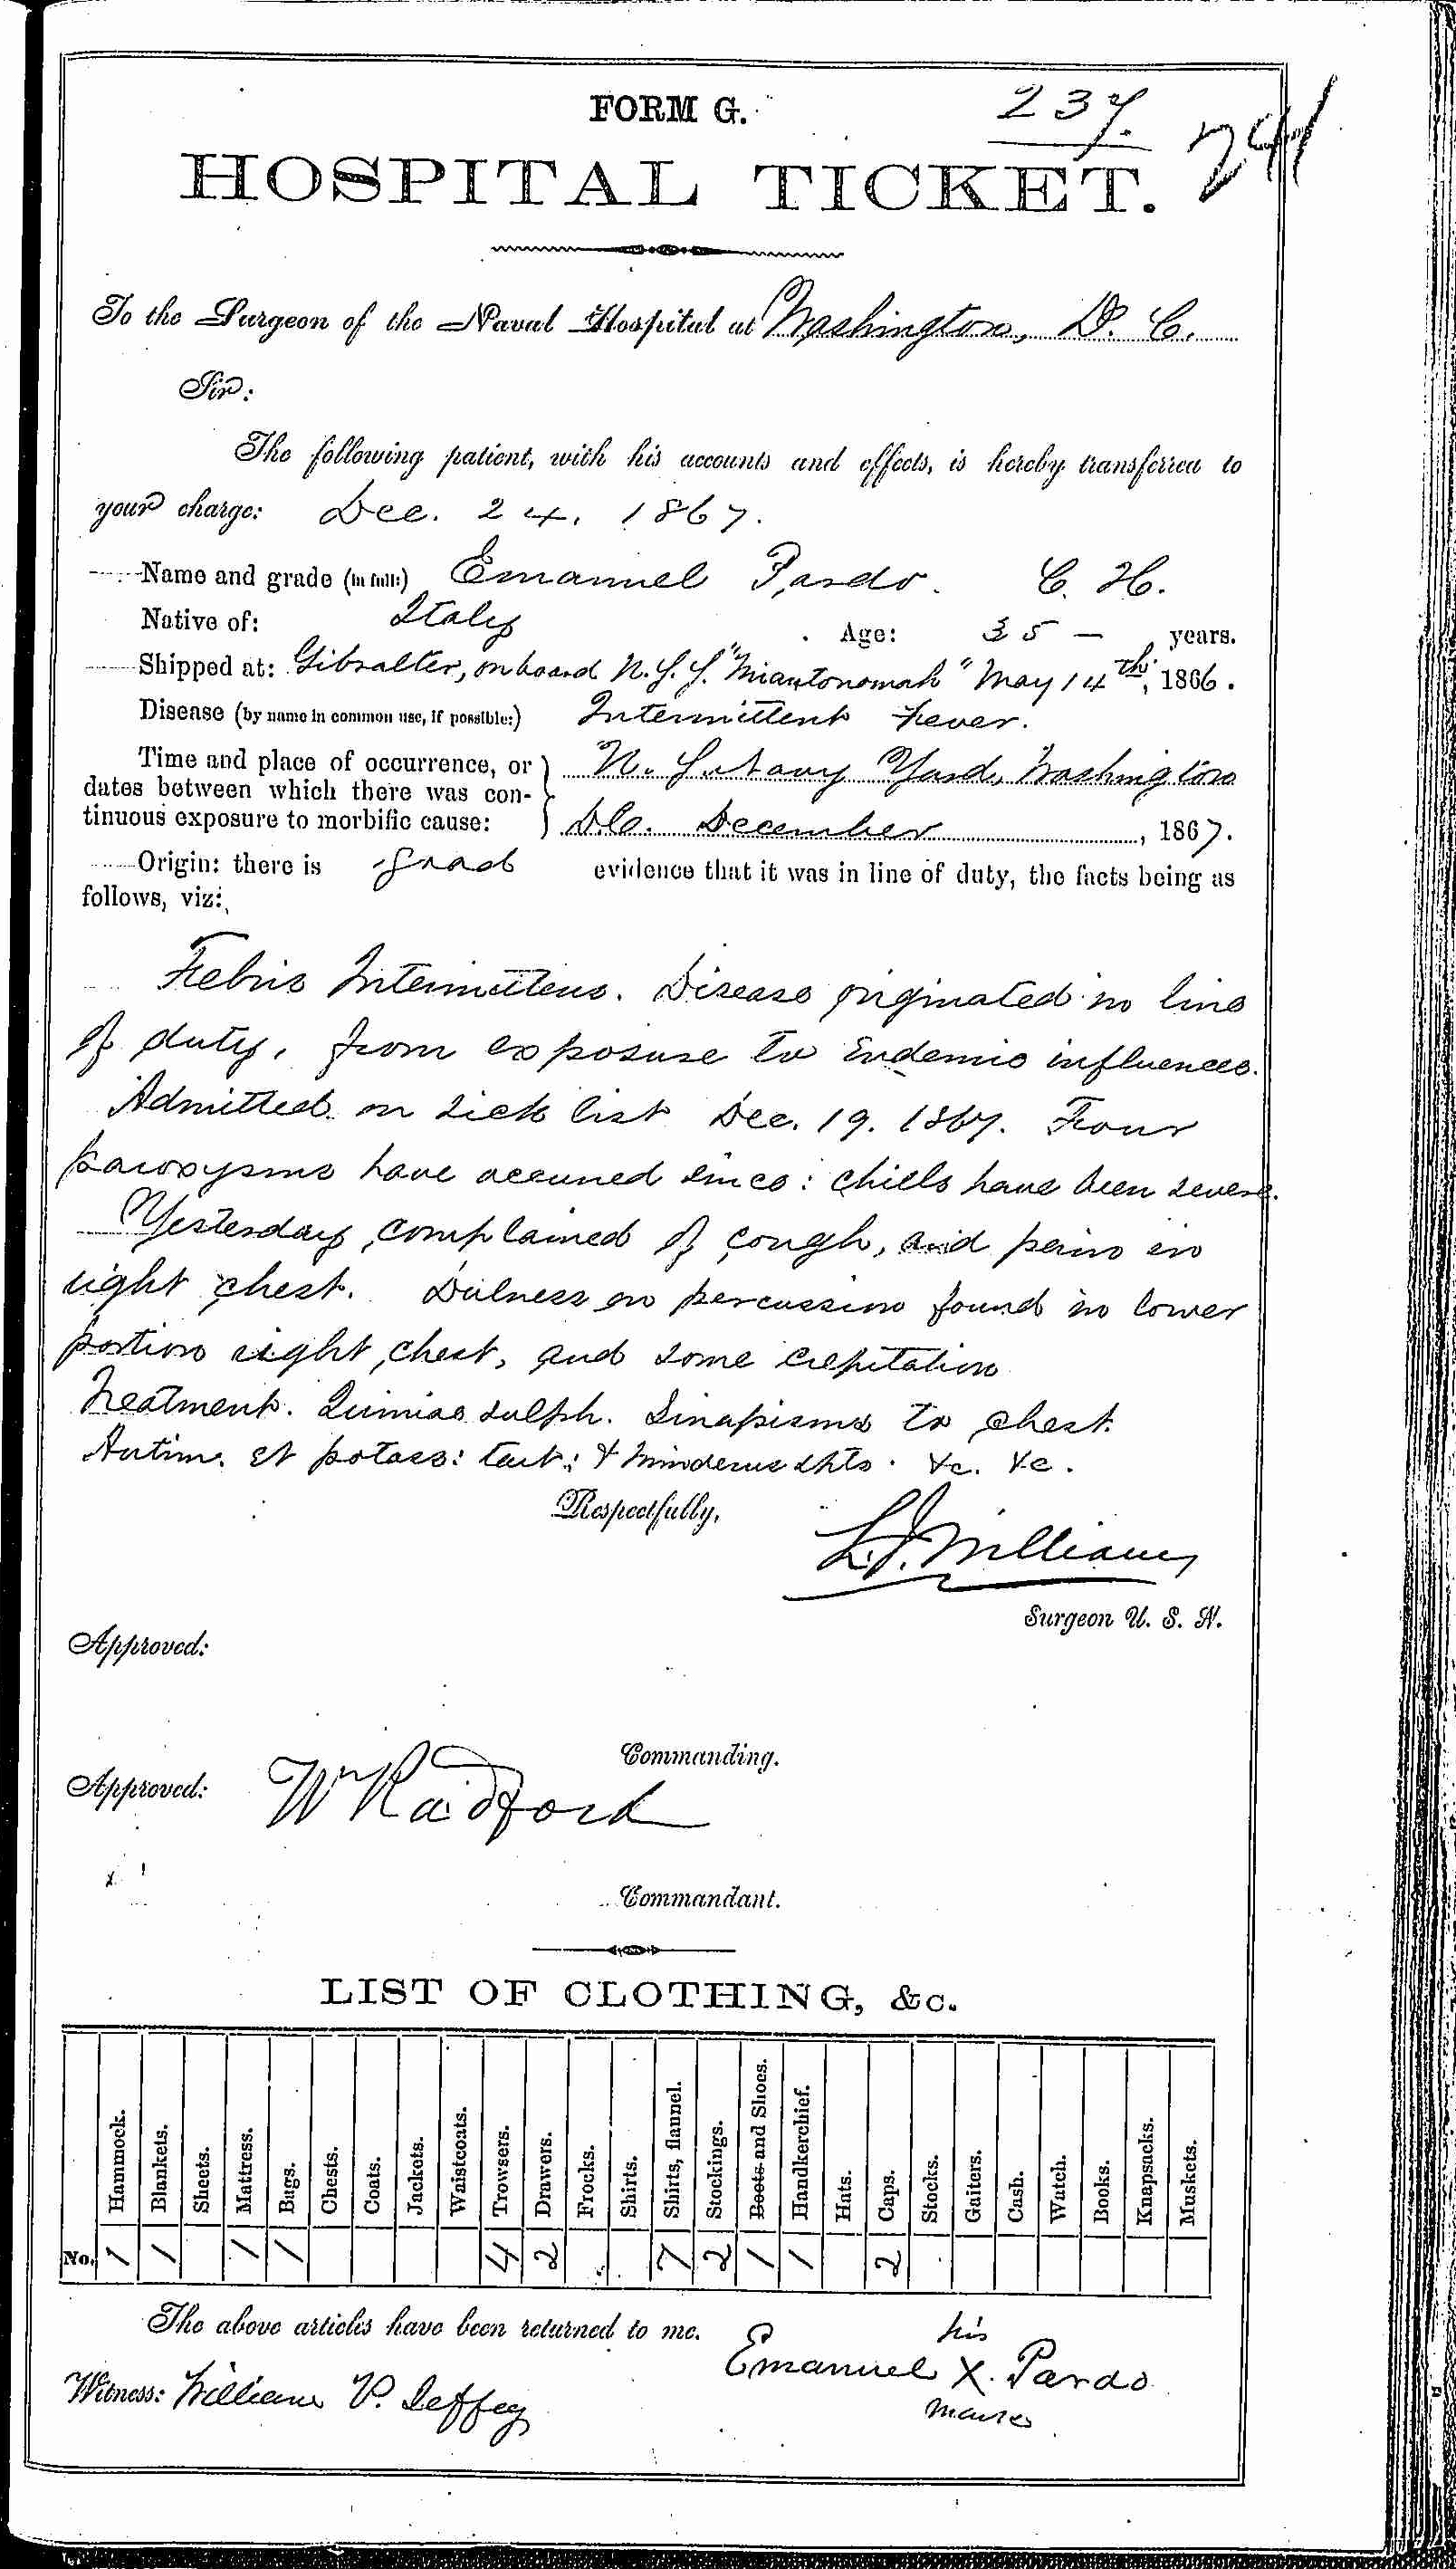 FORM G.
237.
241
HOSPITAL TICKET.
To the Surgeon of the Naval Hospital at Washington, D. C.
Sir:
The following patient, with his accounts and effects, is hereby transferred to
your charge: Dec. 24. 1867.
Name and grade (in full:) Emanuel Pardo. C. H.
Native of: Italy Age: 35 — years.
Shipped at: Gibralter, on board U. S. S. "Miantonomah" May 14th, 1866.
Disease (by name in common use, if possible:) Intermittent Fever.
Time and place of occurrence, or U. S. Navy Yard, Washington
dates between which there was con-
tinuous exposure to morbific cause: D.C. December, 1867.
Origin: there is good evidence that it was in line of duty, the facts being as
follows, viz:
Febris Intermittens. Disease originated in line
of duty, from exposure to Endemic influences.
Admitted on Sick list Dec. 19. 1867. Four
paroxysms have occurred since: chills have been severe.
Yesterday, complained of cough, and pain in
right chest. Dulness on percussion found in lower
portion right chest, and some crepitation
Treatment. Quiniae Sulph. Sinapisms to chest.
Antim. et potass: tart: &  &c. &c.
Respectfully,
L. J. Williams
Surgeon U. S. N.
Approved:
Commanding.
Approved: W Radford
Commandant.
LIST OF CLOTHING, &c.
Hammock. Blankets. Sheets. Mattress. Bags. Chests. Coats. Jackets. Waistcoats. Trowsers. Drawers. Frocks. Shirts. Shirts, flannel. Stockings. Boots and Shoes. Handkerchief. Hats. Caps. Stocks. Gaiters. Cash. Watch. Books. Knapsacks. Muskets.
No. 1 1 1 1 4 2 7 2 1 1 2
The above articles have been returned to me.
his
Emanuel X. Pardo
mark
Witness: William V.